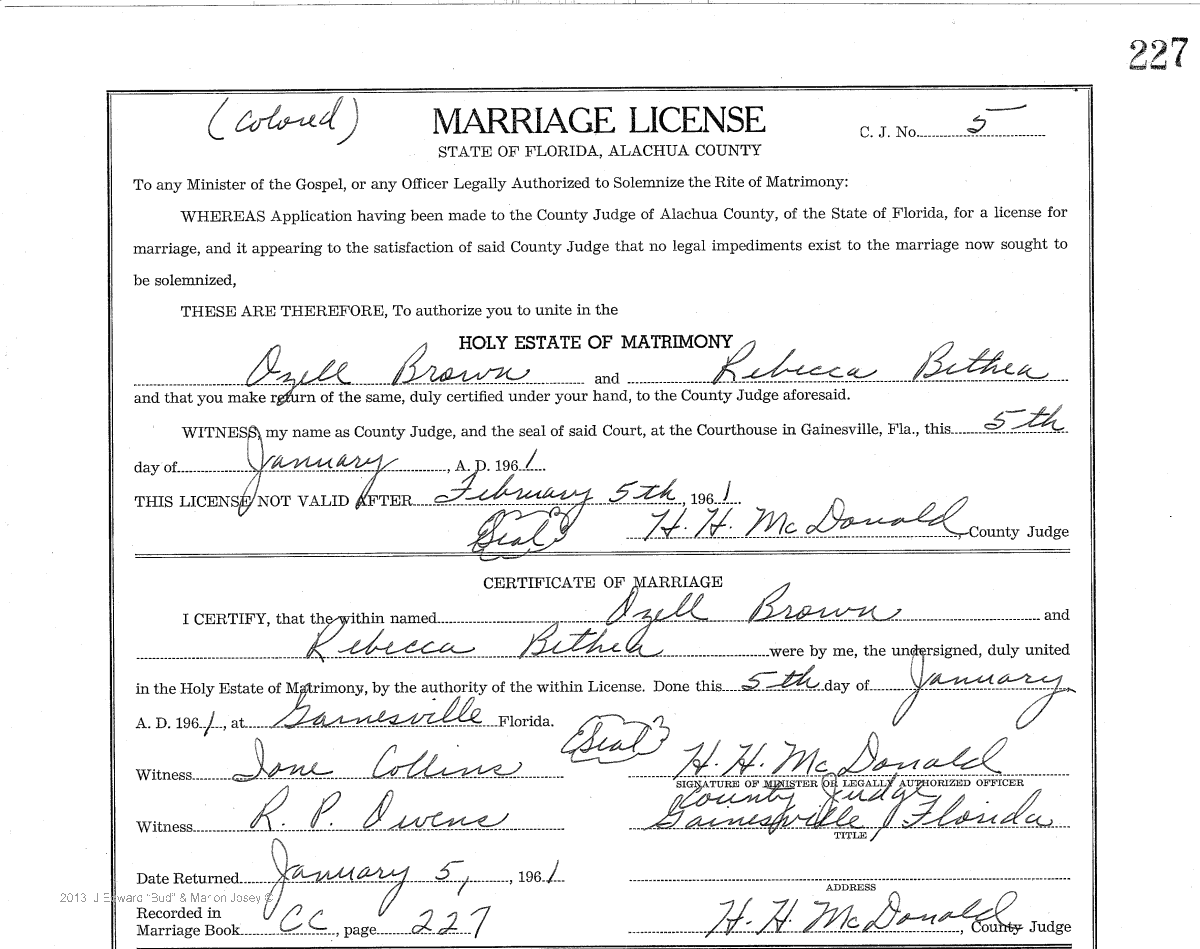 227
(Colored)
MARRIAGE LICENSE
C. J. No. 5
STATE OF FLORIDA, ALACHUA COUNTY
To any Minister of the Gospel, or any Officer Legally Authorized to Solemnize the Rite of Matrimony:
WHEREAS Application having been made to the County Judge of Alachua County, of the State of Florida, for a license for
marriage, and it appearing to the satisfaction of said County Judge that no legal impediments exist to the marriage now sought to
be solemnized,
THESE ARE THEREFORE, To authorize you to unite in the
HOLY ESTATE OF MATRIMONY
Ozell Brown and Rebecca Bethea
and that you make return of the same, duly certified under your hand, to the County Judge aforesaid.
WITNESS, my name as County Judge, and the seal of said Court, at the Courthouse in Gainesville, Fla., this 5th
day of January, A. D. 1961.
THIS LICENSE NOT VALID AFTER February 5th, 1961.
Seal H. H. McDonald, County Judge
CERTIFICATE OF MARRIAGE
I CERTIFY, that the within named Ozell Brown and
Rebecca Bethea were by me, the undersigned, duly united
in the Holy Estate of Matrimony, by the authority of the within License. Done this 5th day of January
A. D. 1961, at Gainesville Florida.
Seal
Witness Ione Collins H. H. McDonald
SIGNATURE OF MINISTER OR LEGALLY AUTHORIZED OFFICER
County Judge
Witness R. P. Owens Gainesville, Florida
TITLE
Date Returned January 5, , 1961
ADDRESS
2013 J Edward "Bud" & Marion Josey ©
Recorded in
Marriage Book CC, page 227 H. H. McDonald, County Judge